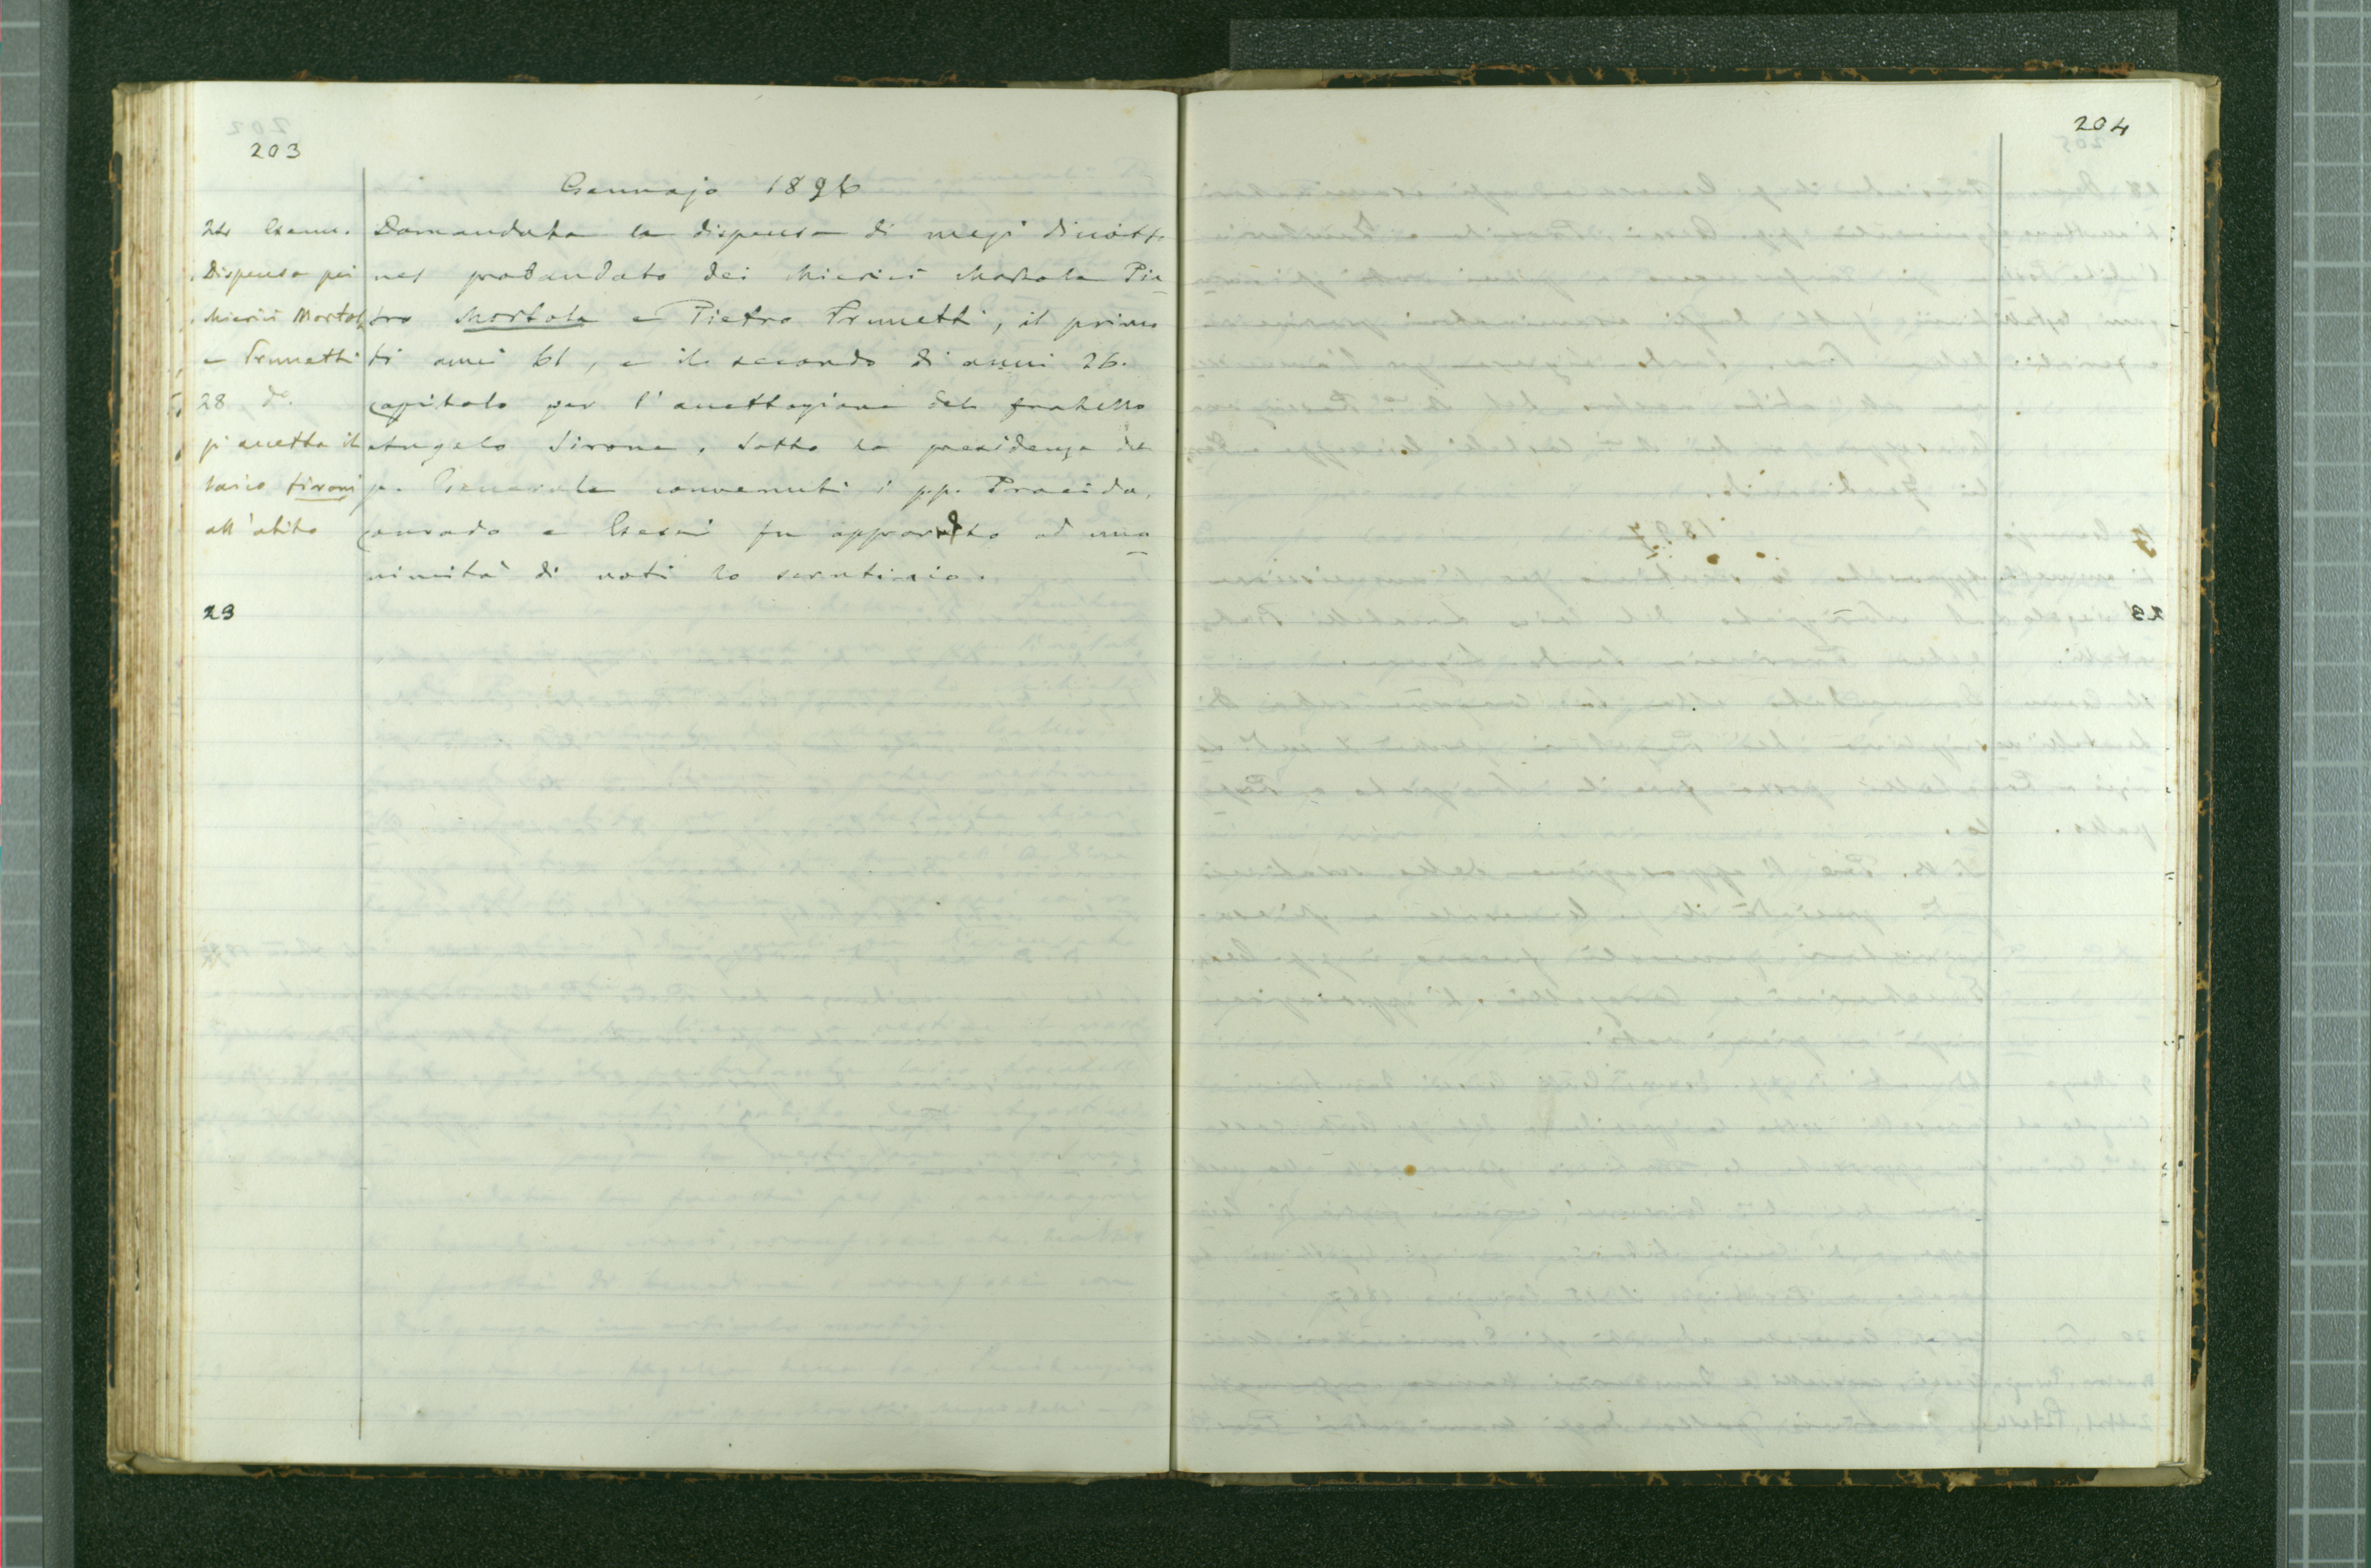 203
Gennajo 1896
24 Genn.
Dispensa pei
chierici Mortola
e Frumetti
Domandata la dispensa di mesi diciott.
nel probandato dei chierici Mortola Pie
tro Mortola e Pietro Frumetti, il primo
di anni 61, e il secondo di anni 26.
28 do.
si accetta il
laico Sironi
all'abito
Capitolo per l'accettazione del fratello
Angelo Sirone. Sotto la presidenza del
p. Generale convenuti i pp. Procida,
Conrado e Gessi fu approvato ad una
nimità di voti lo scrutinio.
23
204